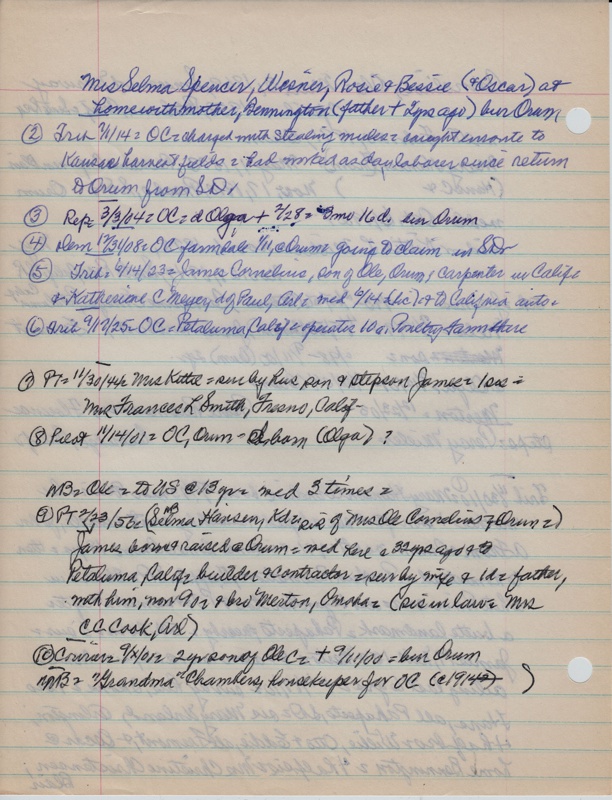 Mrs Selma Spencer, Wesner, Rosie & Bessie (& Oscar) at
home with mother, Pennington (father + 2 yrs ago) bur Orum
② Trib 7/11/14 = OC = charged with stealing mules = caught enroute to
Kansas harvest fields = had worked as day laborer since return
to Orum from S.D.
③ Rep = 3/3/04 = OC = d Olga + 2/28 = 3mo 16d bur Orum
④ Dem 12/31/08 = OC farmsale 1/11, @ Orum = going to claim in S.D.
⑤ Trib = 6/14/23 = James Cornelius, son of Ole, Orum, carpenter in Calif
& Katherine C Meyer, d of Paul, Arl = med 6/14 to California auto =
⑥ Trib 9/17/25 = OC = Petaluma, Calif = operates 10a. Poultry farm there
⑦ PT = 11/30/44 = Mrs Kittie = sur by hus, son & stepson James = 1 sis =
Mrs Frances L Smith, Fresno, Calif
⑧ Pilot 11/14/01 = OC, Orum = born (Olga) ?
NB = Ole = to US @ 13 yr = med 3 times =
⑨ PT 2/23/56 = (NB Selma Hansen, Kd = sis of Mrs Ole Cornelius of Orum =)
James born & raised @ Orum = med here = 32 yrs ago & to
Petaluma, Calif = builder & contractor = sur by wife & 1d = father,
with him, now 90 = & bro Merton, Omaha = (sis in law = Mrs
CC Cook, Arl)
⑩ Courier = 9/ /01 = 2 yr son of Ole C = + 9/11/00 = bur Orum
NB = "Grandma" Chambers, housekeeper for OC (c1914 )